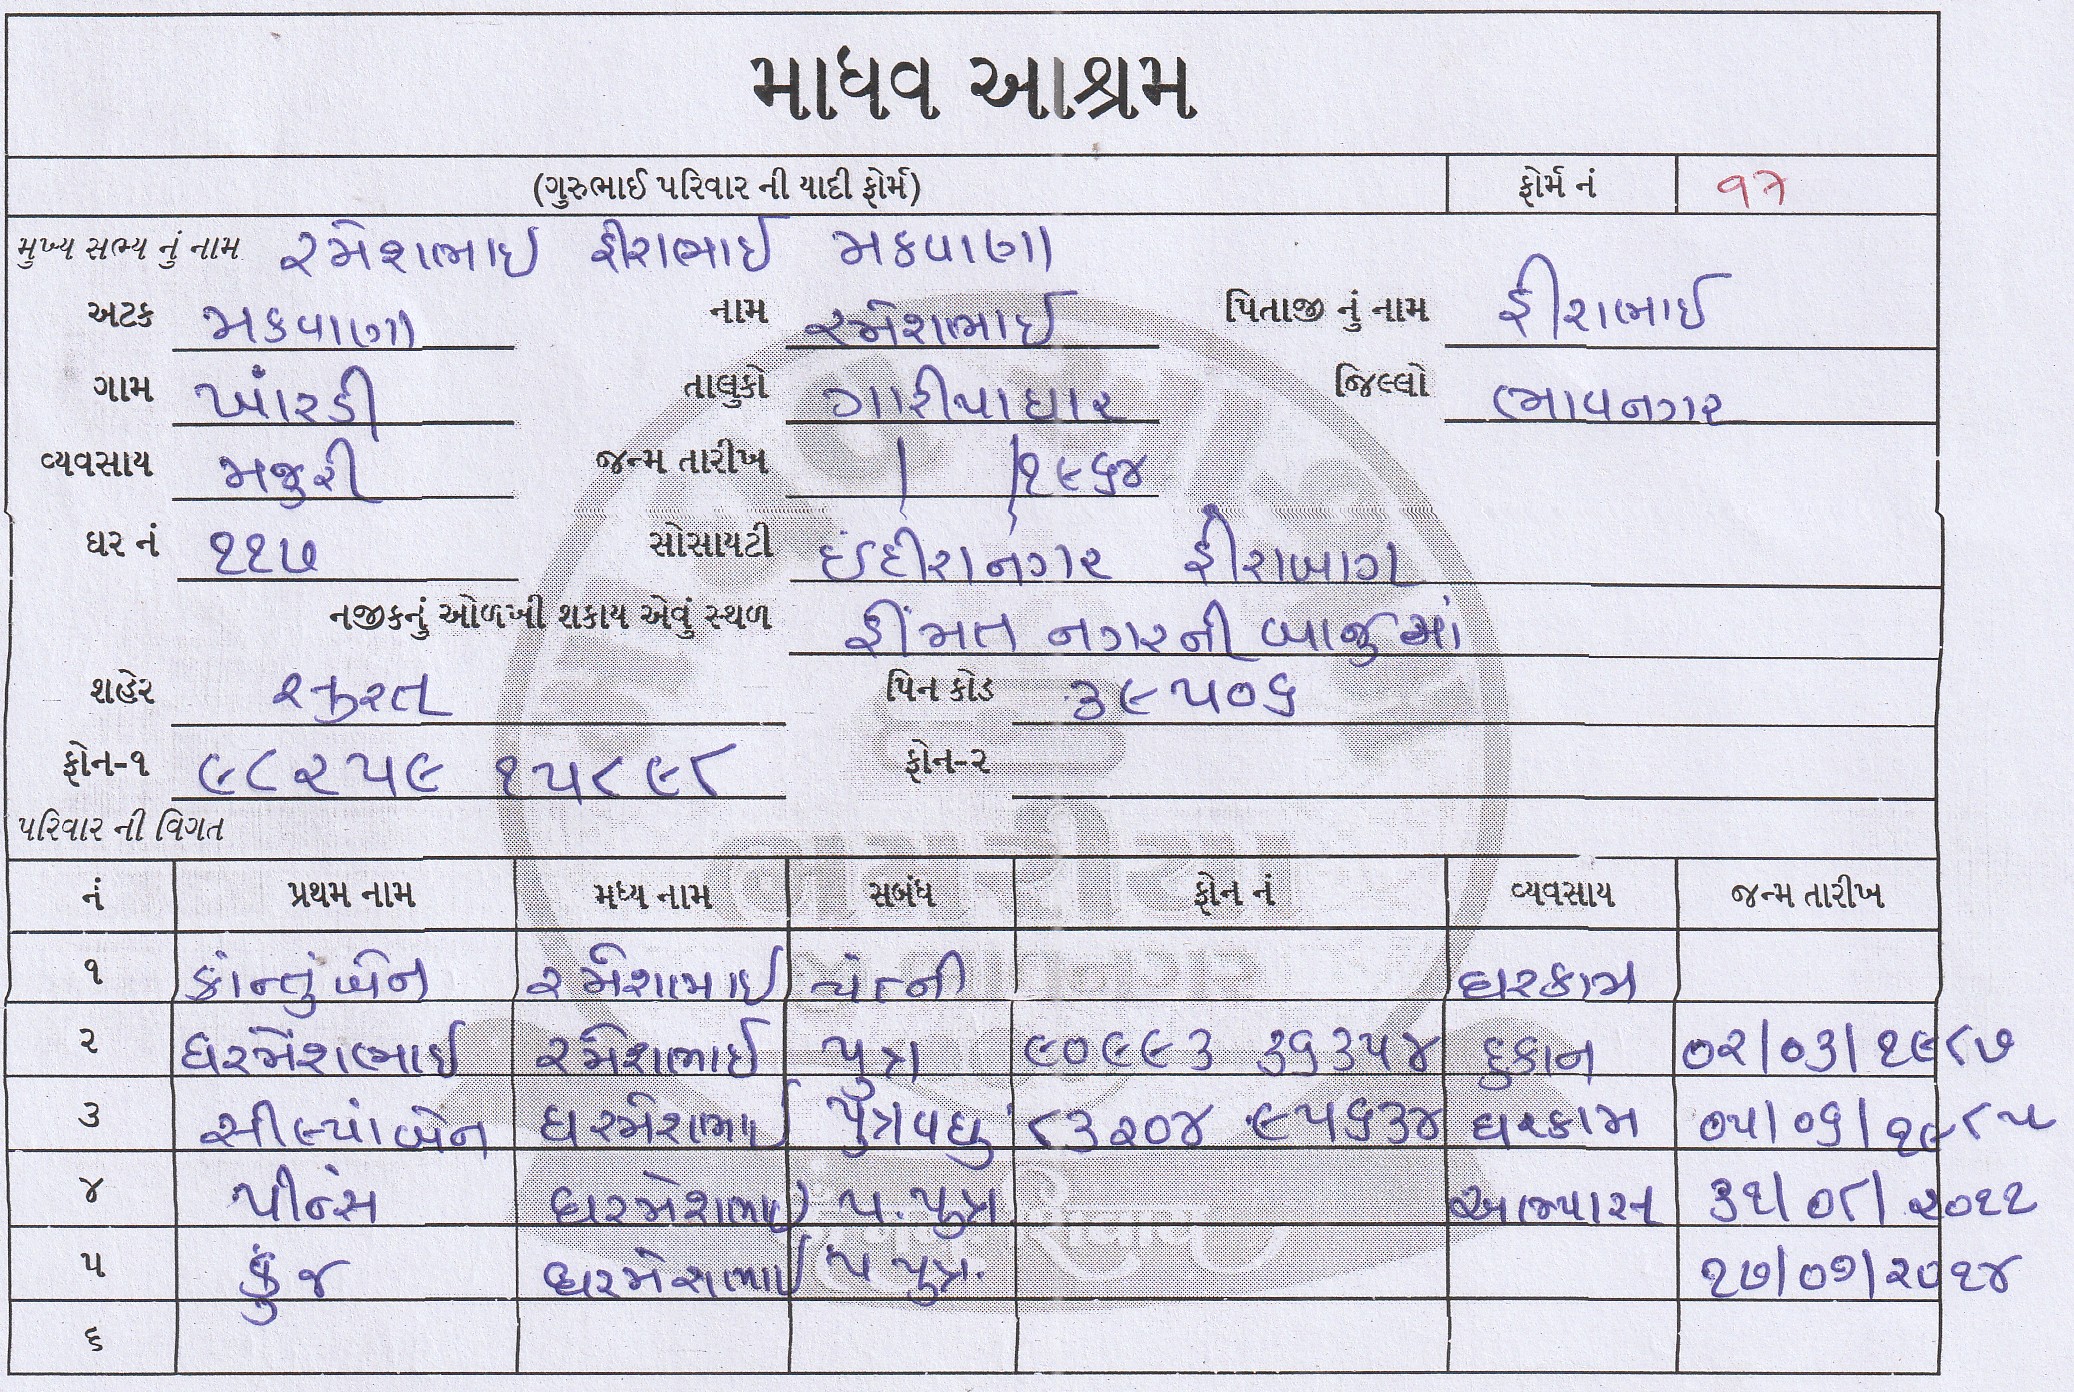 માધવ આશ્રમ
(ગુરુભાઈ પરિવાર ની યાદી ફોર્મ) ફોર્મ નં
મુખ્ય સભ્ય નું નામ રમેશભાઈ હીરાભાઈ મકવાણા
અટક મકવાણા નામ રમેશભાઈ પિતાજી નું નામ હીરાભાઈ
ગામ ખાંરડી તાલુકો ગારીયાધાર જિલ્લો ભાવનગર
વ્યવસાય મજુરી જન્મ તારીખ / /૧૯૬૪
ઘર નં ૧૧૭ સોસાયટી ઈંદીરાનગર હીરાબાગ
નજીકનું ઓળખી શકાય એવું સ્થળ હીંમત નગરની બાજુમાં
શહેર સુરત પિન કોડ ૩૯૫૦૬
ફોન-૧ ૯૮૨૫૯ ૧૫૮૯૮ ફોન-૨
પરિવાર ની વિગત
નં પ્રથમ નામ મધ્ય નામ સબંધ ફોન નં વ્યવસાય જન્મ તારીખ
૧ કાંન્તુંબેન રમેશભાઈ પંત્ની ઘરકામ
૨ ધરમેશભાઈ રમેશભાઈ પુત્ર ૯૦૯૯૩ ૩૬૩૫૪ દુકાન ૦૨/૦૩/૧૯૮૭
૩ સીલ્પાબેન ધરમેશભાઈ પુત્રવધુ ૮૩૨૦૪ ૯૫૬૩૪ ઘરકામ ૦૫/૦૬/૧૯૮૫
૪ પીન્સ ધરમેશભાઈ પ.પુત્ર અભ્યાસ ૩૧/૦૮/૨૦૧૧
૫ કુંજ ધરમેશભાઈ પ પુત્ર. ૧૭/૦૭/૨૦૧૪
૬